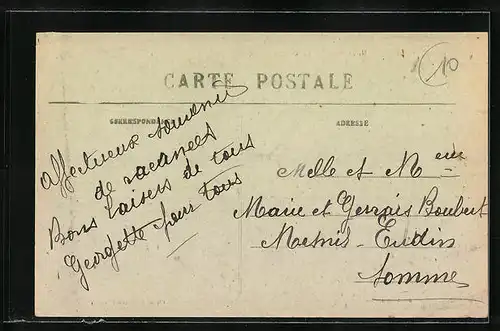 CARTE POSTALE
10
CORRESPONDANCE
ADRESSE
affectueux souvenir
de vacances
Bons baisers de tous
Georgette pour tous
Melle et Meur
Marie et Gervais Boubert
Mesnil-Eudin
Somme